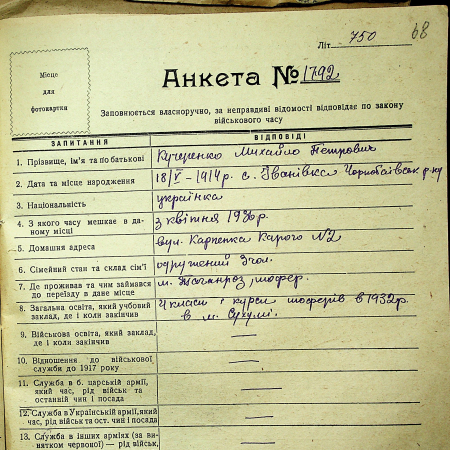 68
Літ. 750
Місце
для
фотокартки
Анкета № 1792
Заповнюється власноручно, за неправдиві відомості відповідає по закону
військового часу
ЗАПИТАННЯ ВІДПОВІДІ
1. Прізвище, ім'я та по батькові Кучеренко Михайло Петрович
2. Дата та місце народження 18/V – 1914 р. с. Іванівка Чорнобаївськ. р-ну
3. Національність українка
4. З якого часу мешкає в да-
ному місці з квітня 1936 р.
5. Домашня адреса вул. Карпенка Карого №2
6. Сімейний стан та склад сім'ї одружений 3 чол.
7. Де проживав та чим займався
до переїзду в дане місце м. Таганрог, шофер.
8. Загальна освіта, який учбовий
заклад, де і коли закінчив 4 класи і курси шоферів в 1932 р.
в м. Сухумі.
9. Військова освіта, який заклад,
де і коли закінчив —
10. Відношення до військової
служби до 1917 року —
11. Служба в б. царській армії,
який час, рід військ та
останній чин і посада —
12. Служба в Українській армії, який
час, рід військ та ост. чин і посада —
13. Служба в інших арміях (за ви-
нятком червоної) — рід військ, —